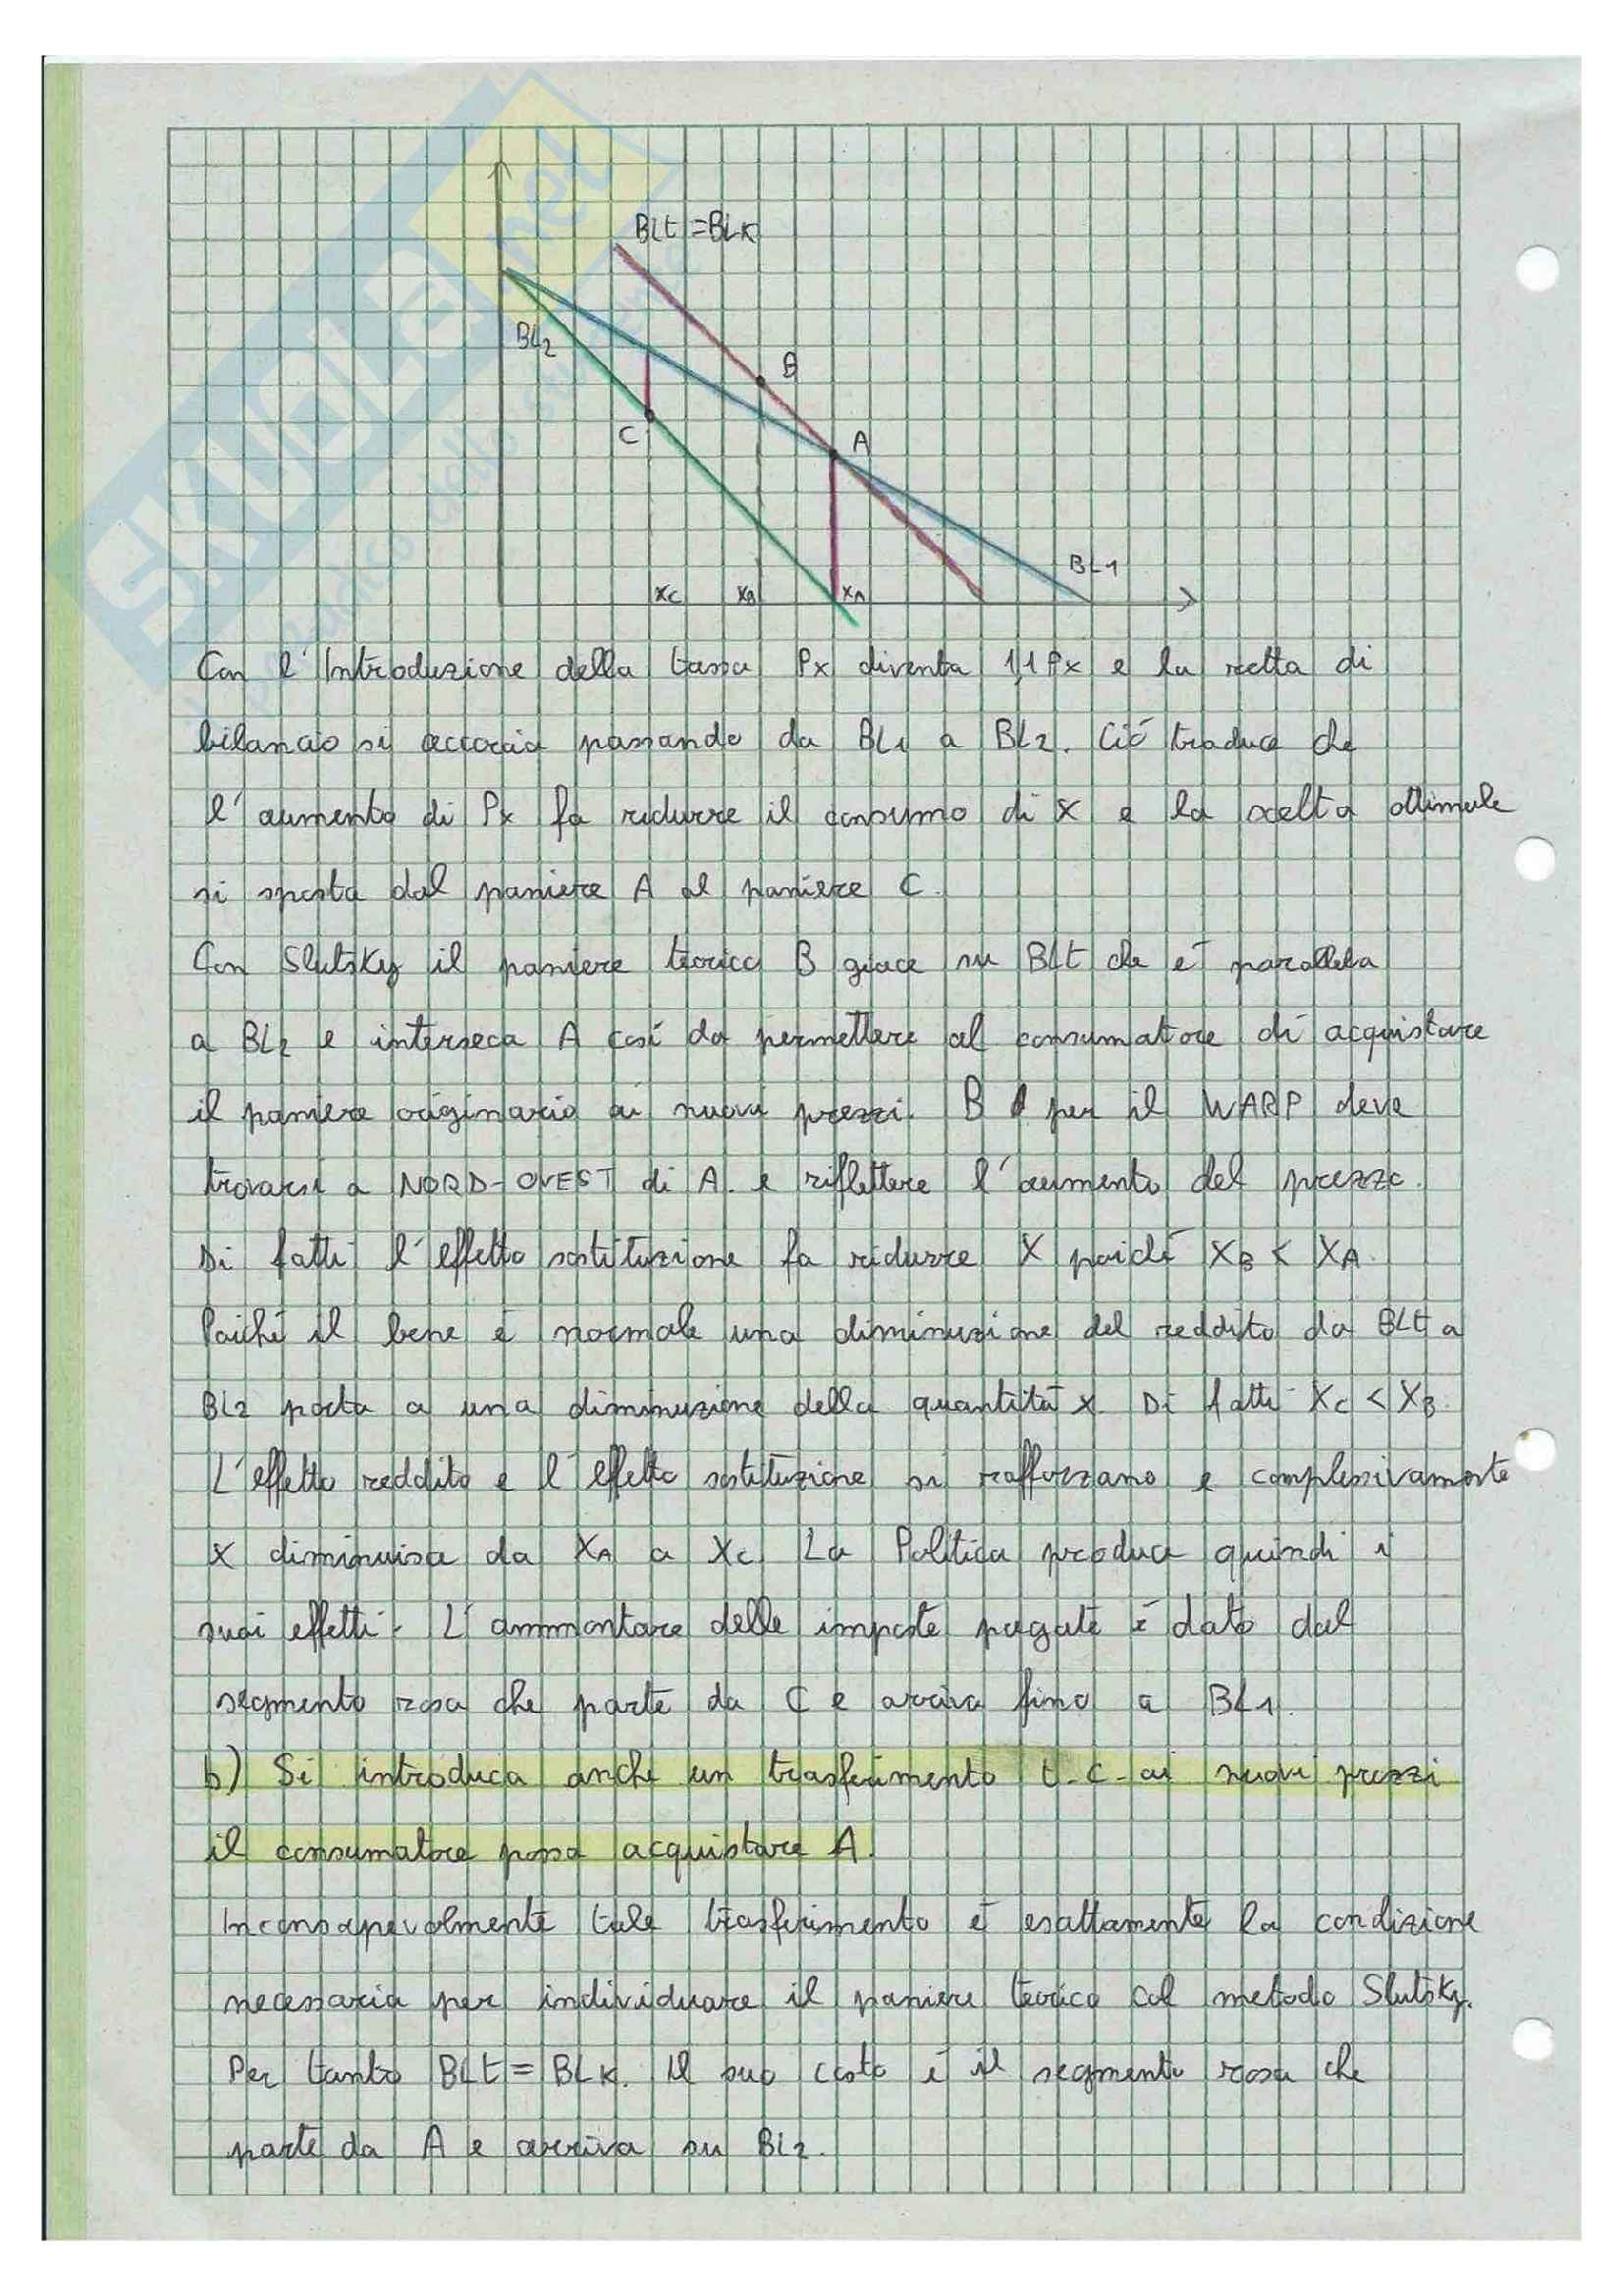 BLt = BLK
BL2
B
C
A
BL1
xc
xB
xA
Con l'Introduzione della tassa Px diventa 1,1 Px e la retta di
bilancio si accorcia passando da BL1 a BL2. Ciò traduce che
l'aumento di Px fa ridurre il consumo di x e la scelta ottimale
si sposta dal paniere A al paniere C.
Con Slutsky il paniere teorico B giace su BLt che è parallela
a BL2 e interseca A così da permettere al consumatore di acquistare
il paniere originario ai nuovi prezzi. B per il WARP deve
trovarsi a NORD-OVEST di A. e riflettere l'aumento del prezzo.
Di fatti l'effetto sostituzione fa ridurre X poiché XB < XA.
Poiché il bene è normale una diminuzione del reddito da BLt a
BL2 porta a una diminuzione della quantità x. Di fatti Xc < XB.
L'effetto reddito e l'effetto sostituzione si rafforzano e complessivamente
X diminuisce da XA a Xc. La Politica produce quindi i
suoi effetti. L'ammontare delle imposte pagate è dato dal
segmento rosa che parte da C e arriva fino a BL1.
b) Si introduca anche un trasferimento t.c. ai nuovi prezzi
il consumatore possa acquistare A.
Inconsapevolmente tale trasferimento è esattamente la condizione
necessaria per individuare il paniere teorico col metodo Slutsky.
Per tanto BLt = BLK. Il suo costo è il segmento rosa che
parte da A e arriva su BL2.
SKUOLA.net